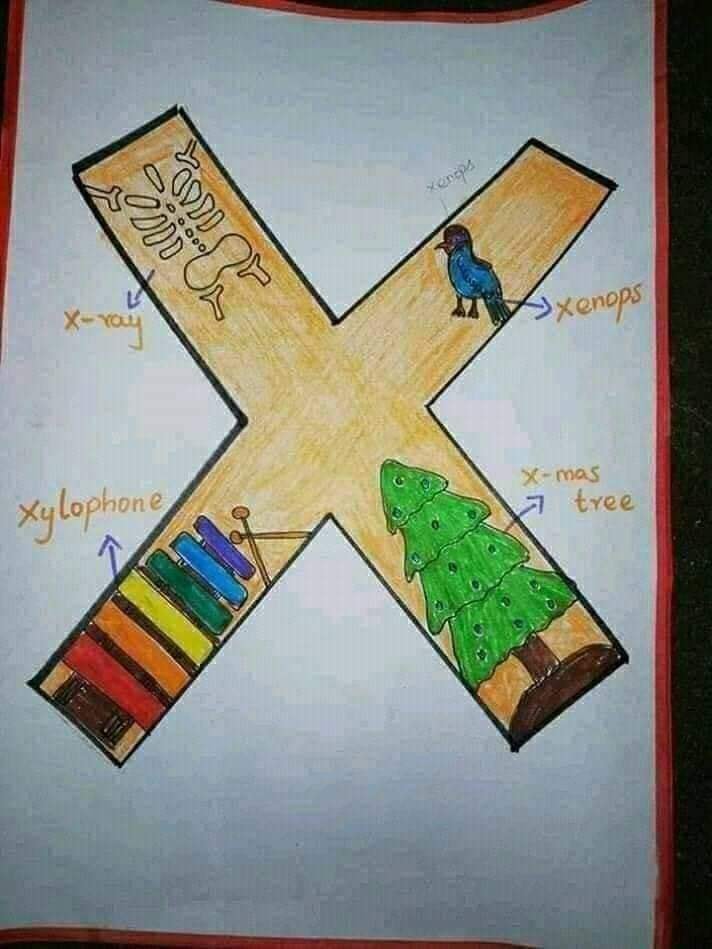 xenops
x-ray
xenops
xylophone
x-mas
tree